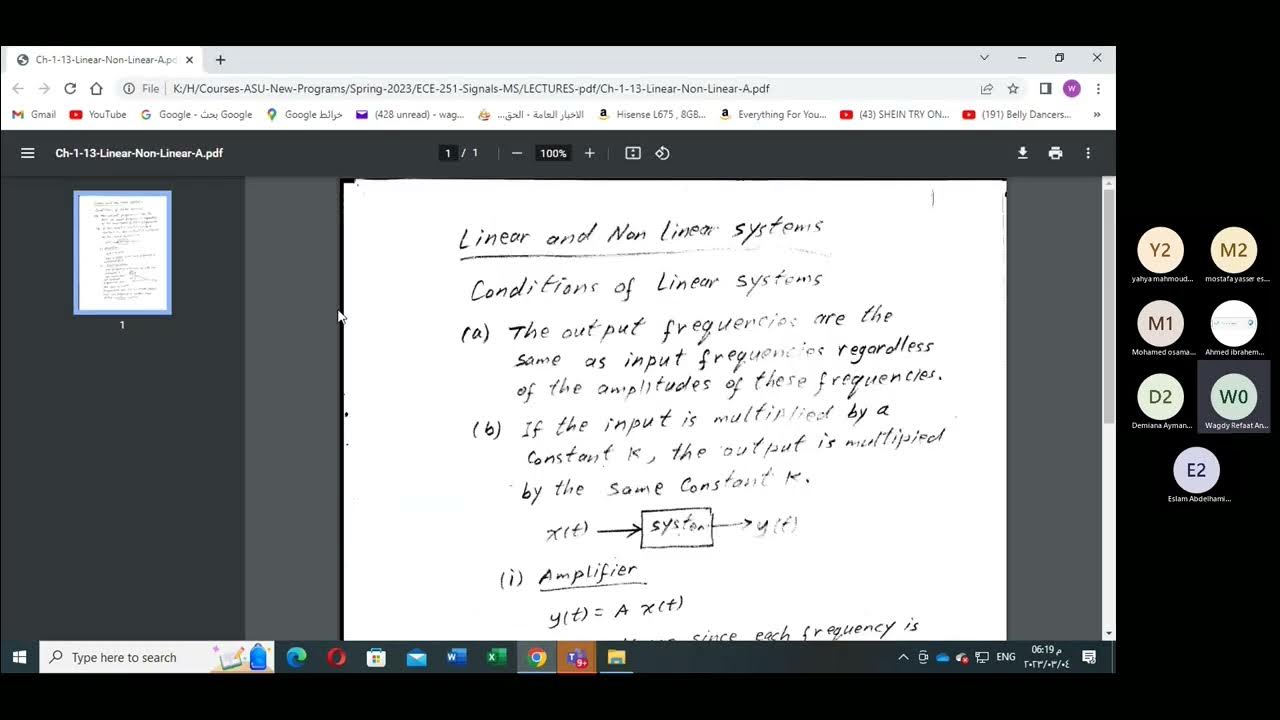 Ch-1-13-Linear-Non-Linear-A.pd
File
K:/H/Courses-ASU-New-Programs/Spring-2023/ECE-251-Signals-MS/LECTURES-pdf/Ch-1-13-Linear-Non-Linear-A.pdf
W
Gmail
YouTube
Google - بحث Google
خرائط Google
(428 unread) - wag...
الاخبار العامة - الحق...
Hisense L675 , 8GB...
Everything For You...
(43) SHEIN TRY ON...
(191) Belly Dancers...
»
Ch-1-13-Linear-Non-Linear-A.pdf
1 / 1
100%
1
1
Linear and Non linear systems
Conditions of Linear systems
(a) The output frequencies are the
same as input frequencies regardless
of the amplitudes of these frequencies.
(b) If the input is multiplied by a
Constant K, the output is multipied
by the same Constant K.
x(t) system y(t)
(i) Amplifier
y(t) = A x(t)
since each frequency is
Y2
M2
yahya mahmoud...
mostafa yasser es...
M1
Mohamed osama...
Ahmed ibrahem...
D2
W0
Demiana Ayman...
Wagdy Refaat An...
E2
Eslam Abdelhami...
Type here to search
9+
ENG
06:19 م
٢٠٢٣/٠٣/٠٤